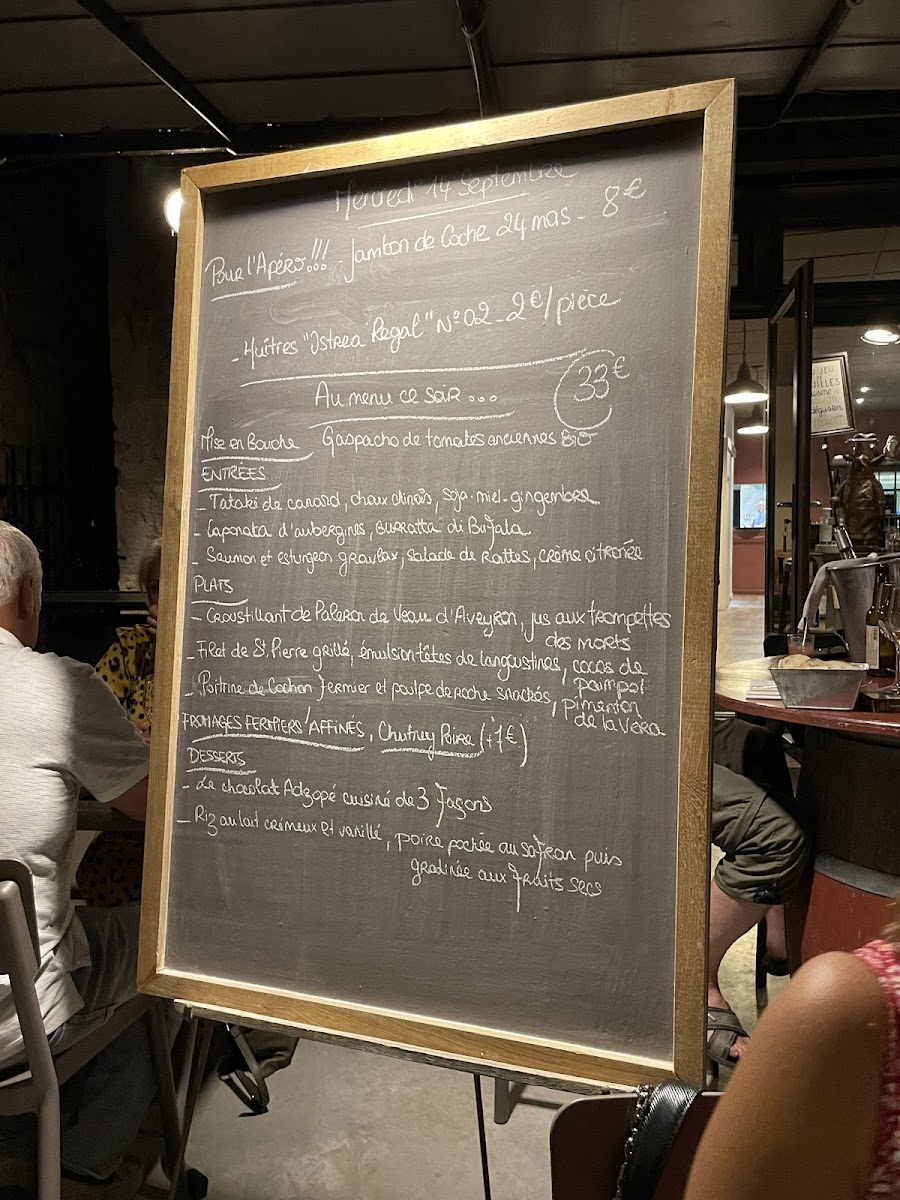 Mercredi 14 Septembre
Pour l'Apéro!!! - Jambon de Coche 24 mois - 8€
- Huîtres "Ostrea Regal" N°02 - 2€/pièce
Au menu ce soir ... 33€
Mise en Bouche Gaspacho de tomates anciennes BIO
ENTRÉES
- Tataki de canard, choux chinois, soja-miel-gingembre
- Caponata d'aubergines, Burratta di Bufala
- Saumon et esturgeon gravlax, salade de Rattes, crème citronée
PLATS
- Croustillant de Paleron de Veau d'Aveyron, jus aux trompettes
des morts
- Filet de St Pierre grillé, émulsion têtes de langoustines, cocos de
paimpol
- Poitrine de Cochon fermier et poulpe de roche snackés, pimenton
de la vera
FROMAGES FERMIERS AFFINÉS, Chutney Poire (+7€)
DESSERTS
- Le chocolat Adzopé cuisiné de 3 façons
- Riz au lait crémeux et vanillé, poire pochée au safran puis
gratinée aux fruits secs